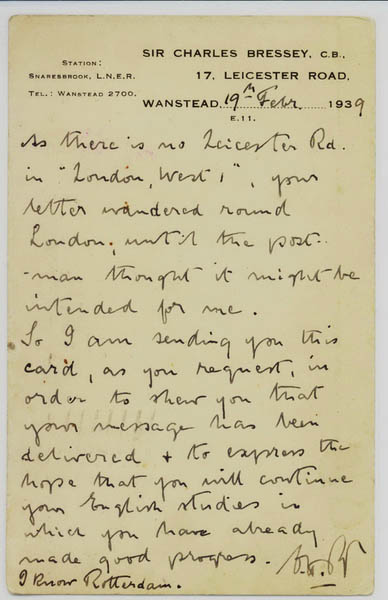 SIR CHARLES BRESSEY, C.B.,
STATION:
SNARESBROOK, L.N.E.R.
17, LEICESTER ROAD,
TEL.: WANSTEAD 2700.
WANSTEAD, 19th Febr. 1939
E.11.
As there is no Leicester Rd.
in "London, West 1", your
letter wandered round
London, until the post-
-man thought it might be
intended for me.
So I am sending you this
card, as you request, in
order to shew you that
your message has been
delivered + to express the
hope that you will continue
your English studies in
which you have already
made good progress.
I know Rotterdam.